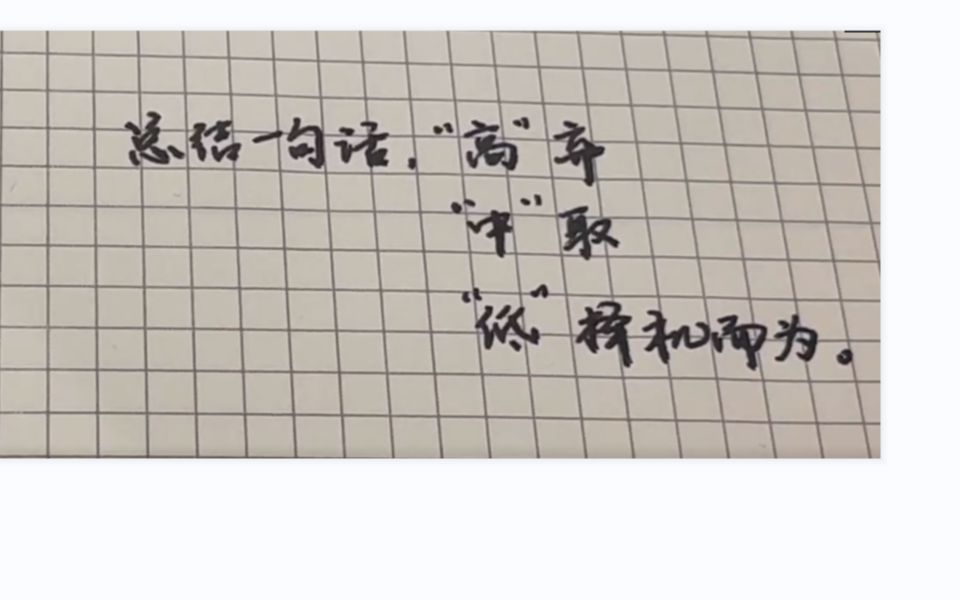 总结一句话，“高”弃
“中”取
“低”择机而为。